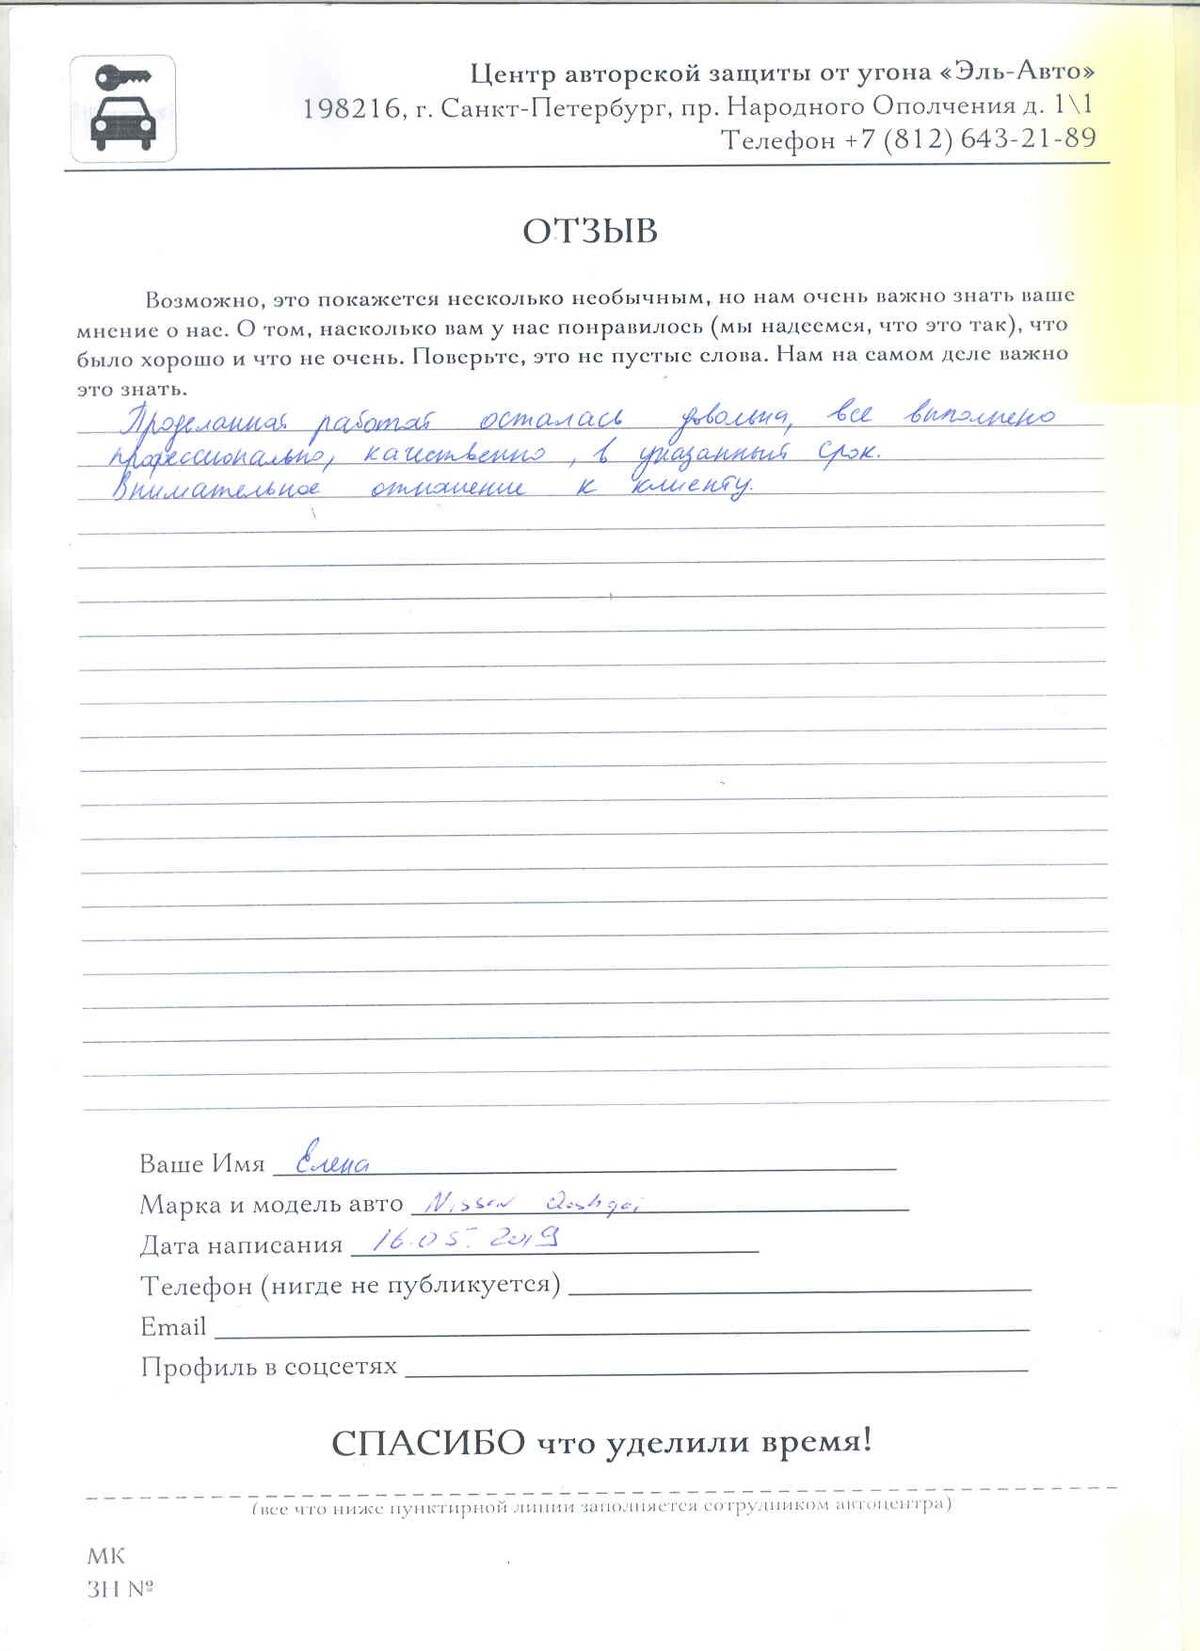 Центр авторской защиты от угона «Эль-Авто»
198216, г. Санкт-Петербург, пр. Народного Ополчения д. 1\1
Телефон +7 (812) 643-21-89
ОТЗЫВ
Возможно, это покажется несколько необычным, но нам очень важно знать ваше
мнение о нас. О том, насколько вам у нас понравилось (мы надеемся, что это так), что
было хорошо и что не очень. Поверьте, это не пустые слова. Нам на самом деле важно
это знать.
Проделанной работой осталась довольна, все выполнено
профессионально, качественно, в указанный срок.
Внимательное отношение к клиенту.
Ваше Имя Елена
Марка и модель авто Nissan Qashqai
Дата написания 16.05.2019
Телефон (нигде не публикуется)
Email
Профиль в соцсетях
СПАСИБО что уделили время!
(все что ниже пунктирной линии заполняется сотрудником автоцентра)
МК
ЗН №